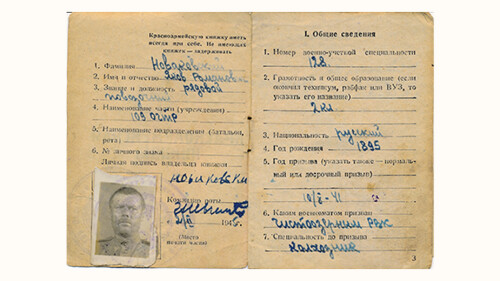 Красноармейскую книжку иметь
всегда при себе. Не имеющих
книжек — задерживать
1. Фамилия Новаковский
2. Имя и отчество Яков Романович
3. Звание и должность рядовой
повозочный
4. Наименование части (учреждения)
109
5. Наименование подразделения (батальон,
рота)
6. № личного знака
Личная подпись владельца книжки
Командир роты
194
(Место
печати части)
I. Общие сведения
1. Номер военно-учетной специальности
128
2. Грамотность и общее образование (если
окончил техникум, рабфак или ВУЗ, то
указать его название)
2 кл
3. Национальность русский
4. Год рождения 1895
5. Год призыва (указать также — нормаль-
ный или досрочный призыв)
41
6. Каким военкоматом призван
Чистоозерным РВК
7. Специальность до призыва
Колхозник
3